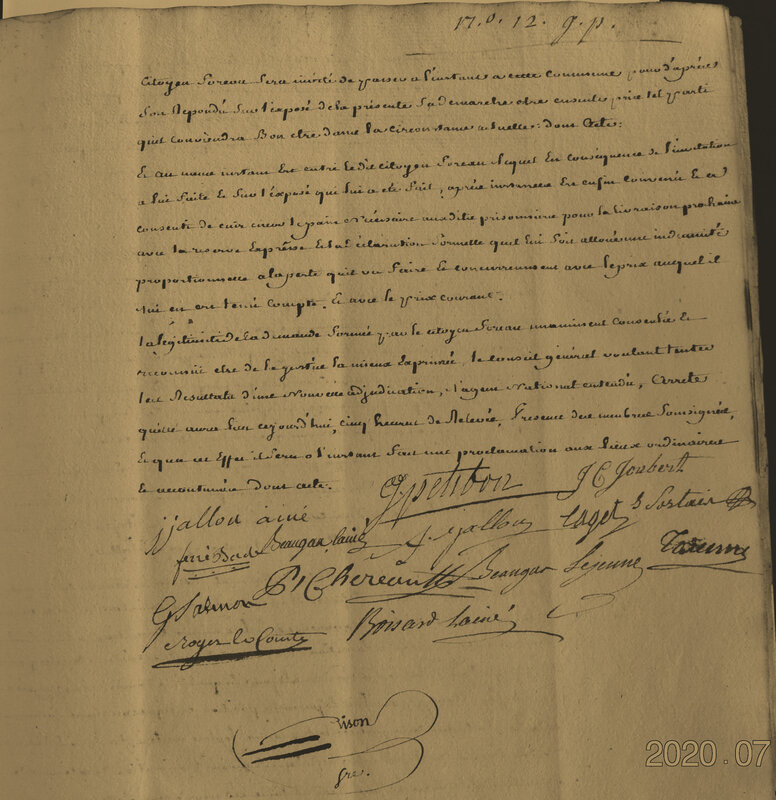 17.0.12. g.p.
Citoyen Soreau sera invité de passer a l'instant a cette commune pour d'après
Son Repondû Sur l'exposé de la présente Sa demarche etre ensuite prise tel parti
quil Conviendra Bon etre dans la circonstance actuelle: dont Acte:
Et au meme instant Est entré ledit citoyen Soreau lequel En conséquence de l'invitation
a lui faite Et Sur l'exposé qui lui a eté fait, après instances Est enfin Convenû Et a
consenti de cuir encor le pain Nécéssaire auxdits prisonniers pour la livraison prochaine
avec la reserve Expresse Et la déclaration formelle quil lui soit alloué une indemnité
proportionnée a la perte quil va faire Et concurremment avec le prix auquel il
lui en est tenû Compte. Et avec le prix courant.
la légitimité de la demande formée par le citoyen Soreau unanimement Consentie Et
reconnüe etre de la justice la mieux Exprimée, le conseil général voulant tenter
les Resultats d'une Nouvelle adjudication, l'agent National entendu, Arrete
quelle aura lieu cejourd'hui, cinq heures de Relevée, Presence des membres Soussignés,
Et qua cet Effet il sera a l'instant fait une proclamation aux lieux ordinaires
Et accoutumés dont acte.
jjallou ainé Jpetitbon J C Joubert
Beaugas lainé jallou Caget Sortais
P J Chereau Beaugas Lejeune
G Salmon
Roger le Comte Boisard lainé
ison
gre.
2020.07